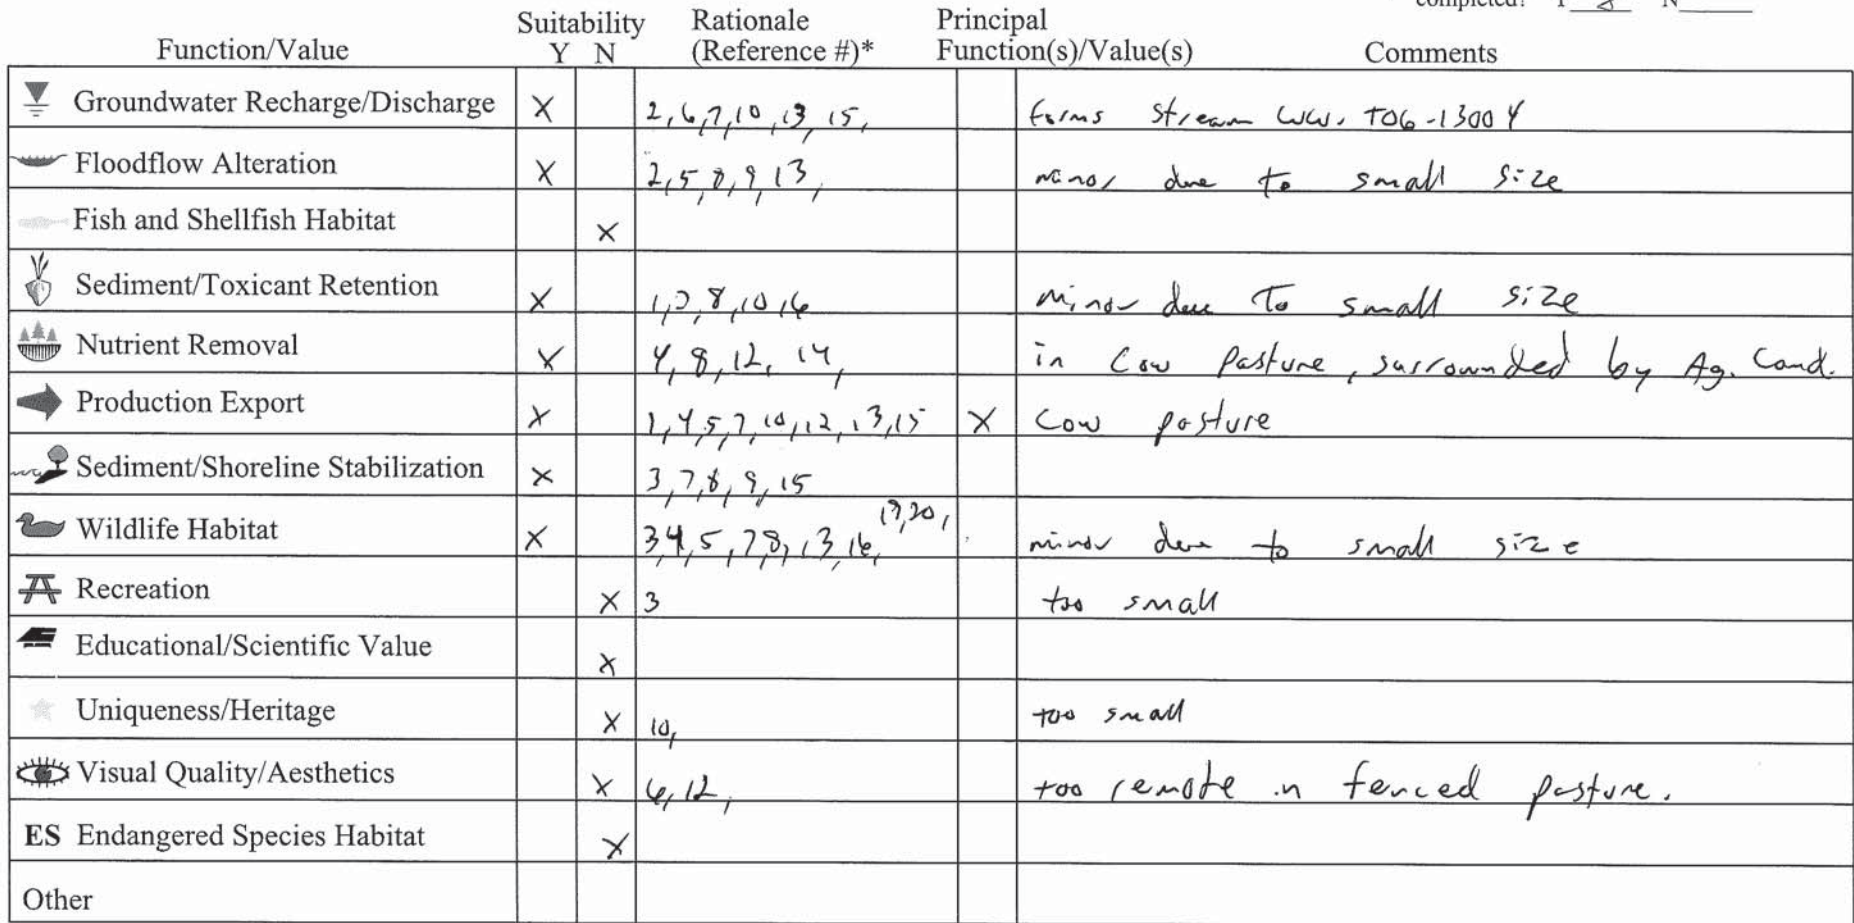 completed? Y N
Suitability Rationale Principal
Function/Value Y N (Reference #)* Function(s)/Value(s) Comments
Groundwater Recharge/Discharge X 2,6,7,10,13,15, forms stream
Floodflow Alteration X 2,5,8,9,13, minor due to small size
Fish and Shellfish Habitat X
Sediment/Toxicant Retention X minor due to small size
Nutrient Removal X 4,8,12,14, in Cow Pasture, surrounded by Ag.
Production Export X 1,4,5,7,10,12,13,15 X Cow pasture
Sediment/Shoreline Stabilization X 3,7,8,9,15
Wildlife Habitat X 3,4,5,7,8,13,16, minor due to small size
Recreation X 3 too small
Educational/Scientific Value X
Uniqueness/Heritage X 10, too small
Visual Quality/Aesthetics X 6,12, too remote in fenced pasture.
ES Endangered Species Habitat X
Other